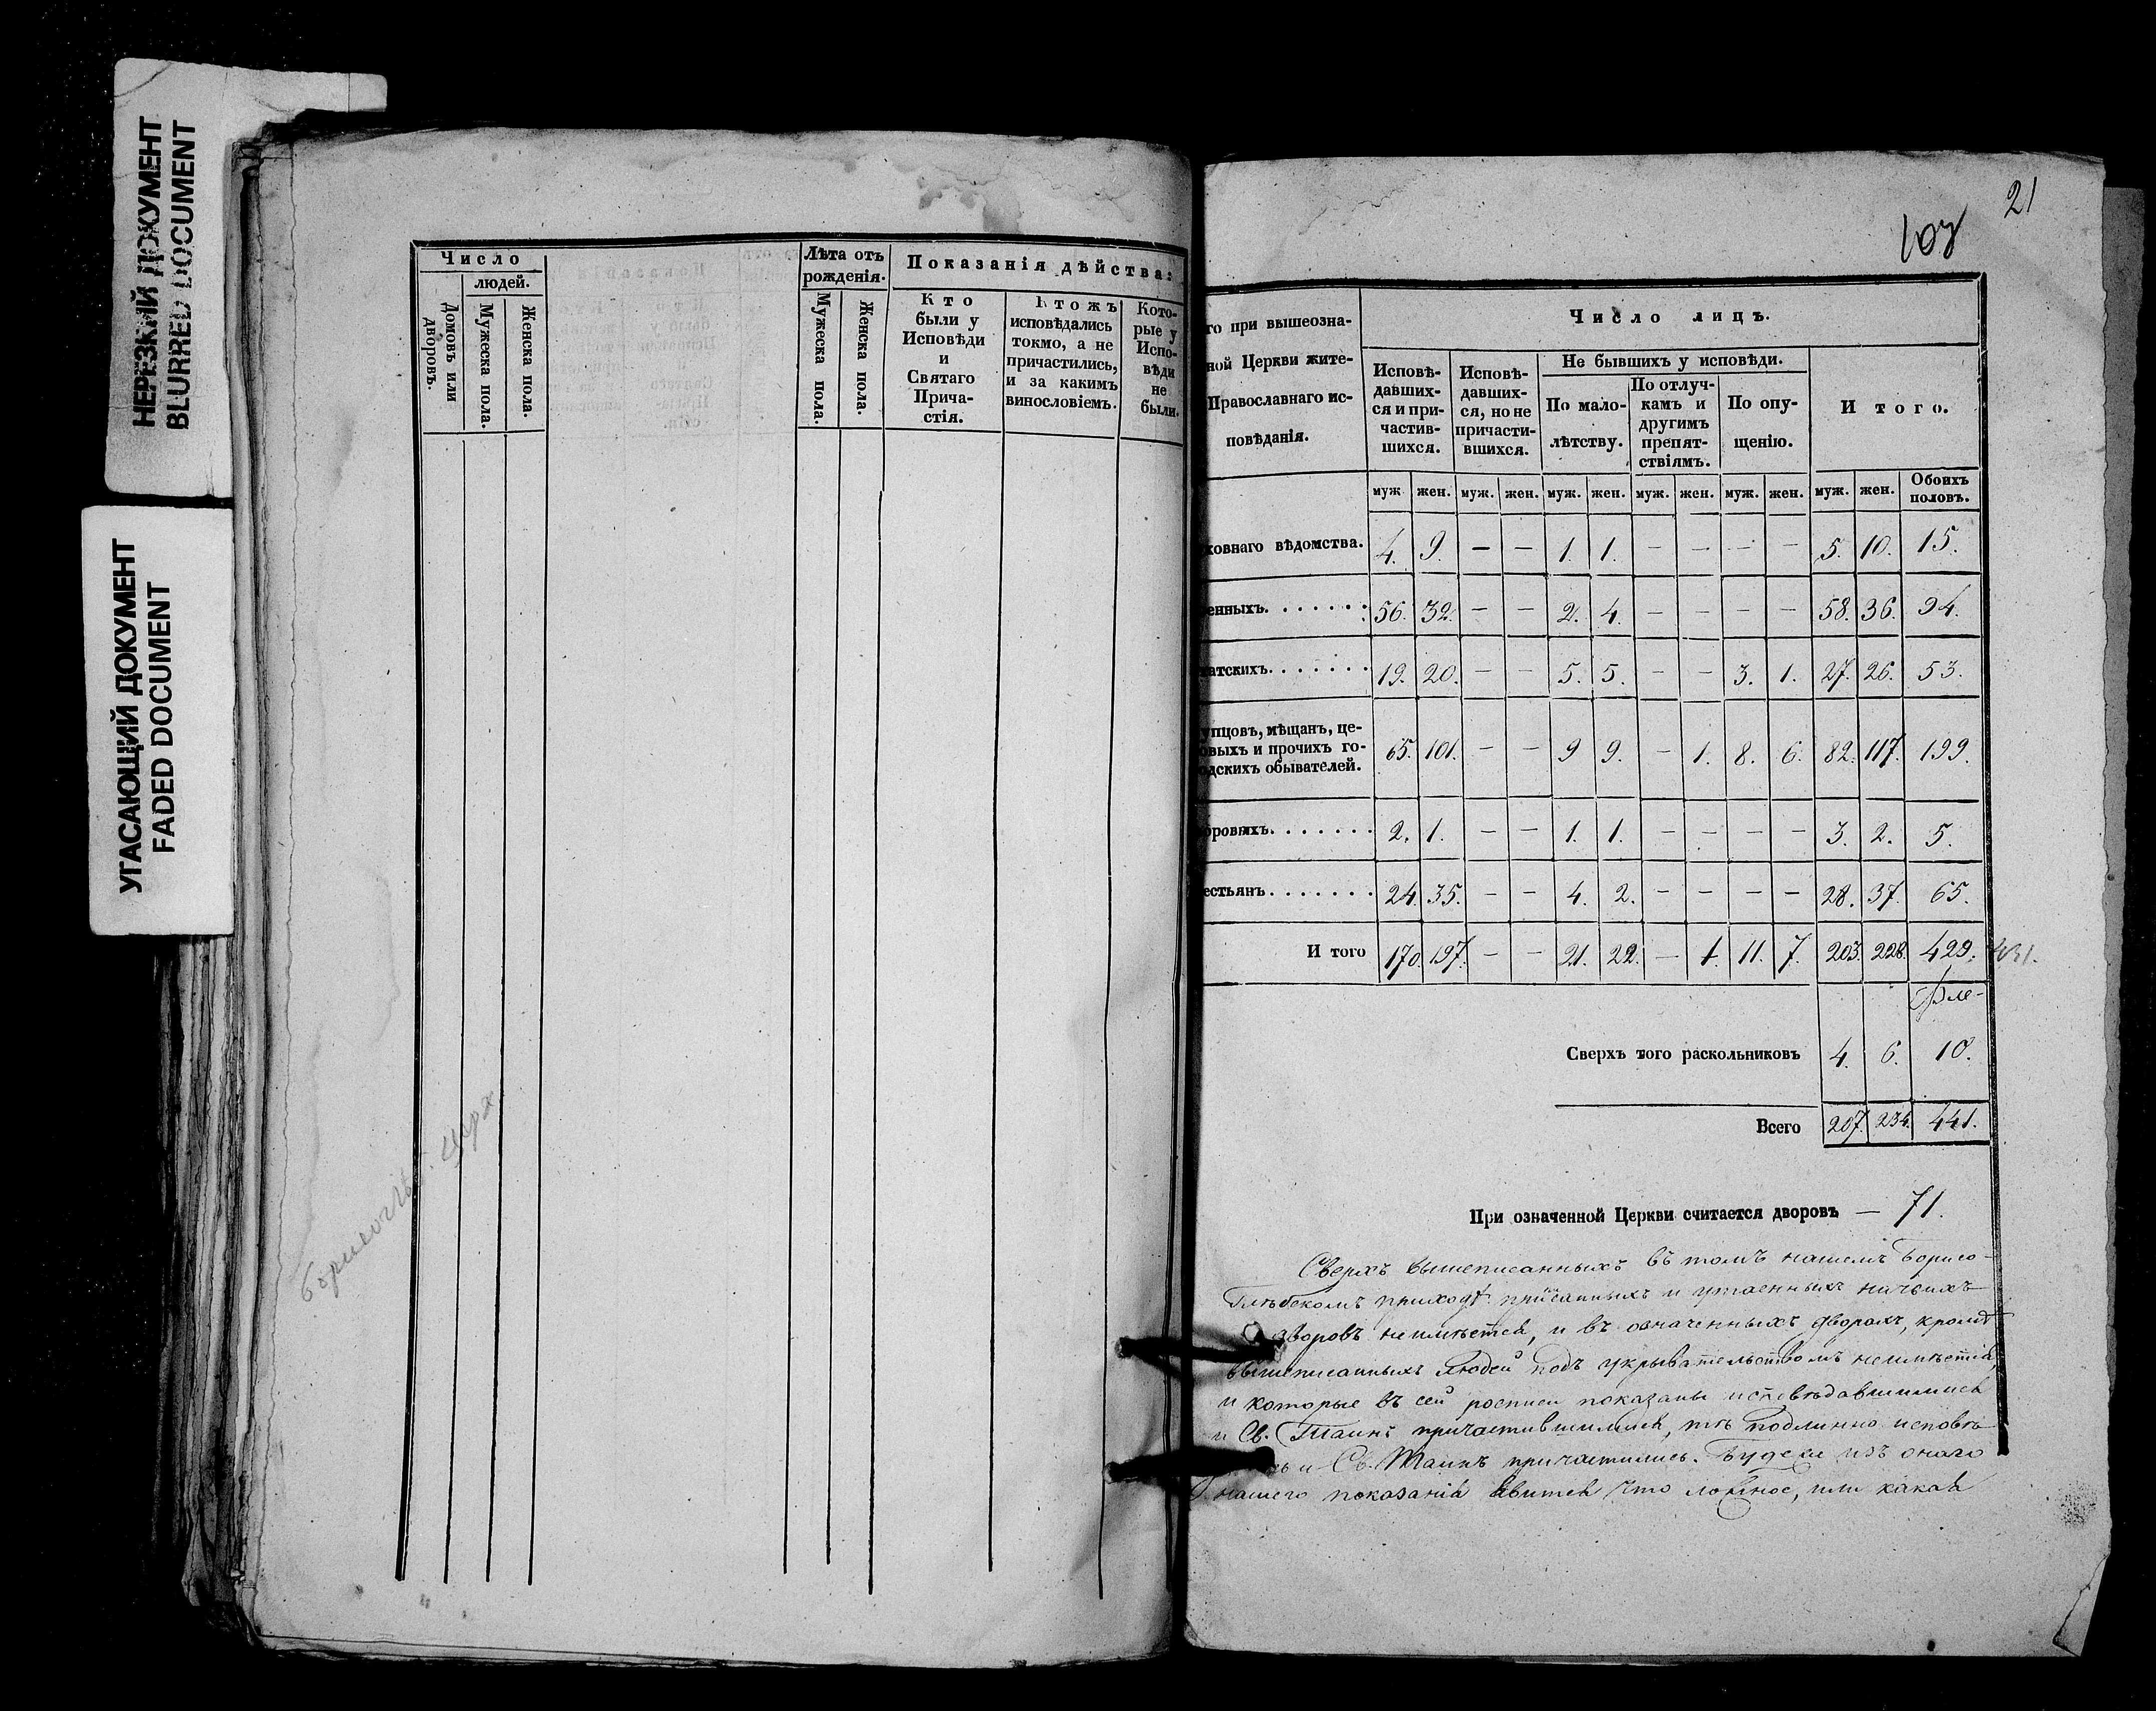 НЕРЕЗКИЙ ДОКУМЕНТ
BLURRED DOCUMENT
УГАСАЮЩИЙ ДОКУМЕНТ
FADED DOCUMENT
Число
людей.
Домовъ или дворовъ.
Мужеска пола.
Женска пола.
Лѣта отъ рожденія.
Мужеска пола.
Женска пола.
Показанія дѣйства:
Кто
были у
Исповѣди
и
Святаго
Прича-
стія.
Ктожъ
исповѣдались
токмо, а не
причастились,
и за какимъ
винословіемъ.
Кото-
рые у
Испо-
вѣди
не
были.
21
го при вышеозна-
ной Церкви жите-
Православнаго ис-
повѣданія.
Число лицъ.
Исповѣ-
давших-
ся и при-
частив-
шихся.
Исповѣ-
давших-
ся, но не
причасти-
вшихся.
Не бывшихъ у исповѣди.
По мало-
лѣтству.
По отлуч-
камъ и
другимъ
препят-
ствіямъ.
По опу-
щенію.
И того.
муж. жен. муж. жен. муж. жен. муж. жен. муж. жен. муж. жен. Обоихъ половъ.
ховнаго вѣдомства. 4. 9. — — 1. 1. — — — — 5. 10. 15.
енныхъ. 56. 32. — — 2. 4. — — — — 58. 36. 94.
татскихъ. 19. 20. — — 5. 5. — — 3. 1. 27. 26. 53.
упцовъ, мѣщанъ, це-
овыхъ и прочихъ го-
одскихъ обывателей. 65. 101. — — 9 9. — 1. 8. 6. 82. 117. 199.
оровыхъ. 2. 1. — — 1. 1. — — — — 3. 2. 5.
естьянъ. 24. 35. — — 4. 2. — — — — 28. 37. 65.
И того 170. 197. — — 21. 22. — 1. 11. 7. 203. 228. 429. 431.
Сверхъ того раскольниковъ 4. 6. 10.
Всего 207. 234. 441.
При означенной Церкви считается дворовъ — 71.
Сверхъ вышеписанныхъ въ томъ нашемъ Борисо-
Глѣбскомъ приходѣ приписанныхъ и утаенныхъ ничьихъ
дворовъ неимѣется, и въ означенныхъ дворахъ, кромѣ
вышеписанныхъ людей подъ укрывательствомъ неимѣется,
и которые въ сей росписи показаны исповѣдавшимися
и Св. Таинъ причастившимися, тѣ подлинно исповѣ-
сь и Св. Таинъ причастились. Будеже изъ онаго
нашего показанія явится что ложное, или какая